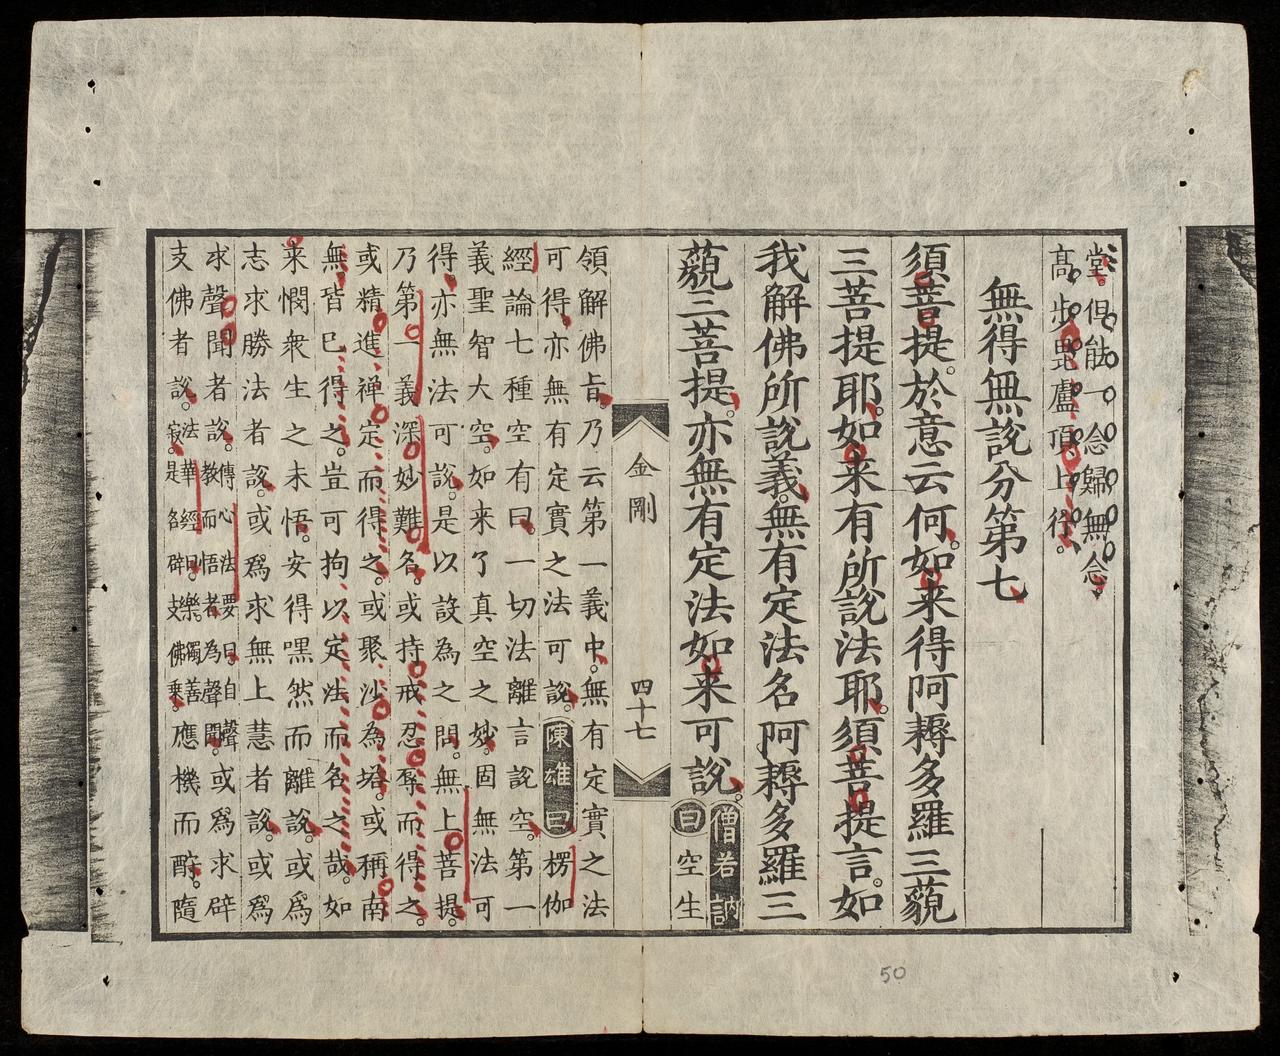 堂。俱能一念歸無念。
高步毘盧頂上行。
無得無說分第七
須菩提。於意云何。如来得阿耨多羅三藐
三菩提耶。如来有所說法耶。須菩提言。如
我解佛所說義。無有定法名阿耨多羅三
藐三菩提。亦無有定法如来可說。
僧若訥
曰空生
金剛
四十七
領解佛旨。乃云第一義中。無有定實之法
可得。亦無有定實之法可說。陳雄曰楞伽
經論七種空有曰。一切法離言說空。第一
義聖智大空。如来了真空之妙。固無法可
得。亦無法可說。是以設為之問。無上菩提。
乃第一義深妙難名。或持戒忍辱而得之。
或精進禅定而得之。或聚沙為塔。或稱南
無。皆已得之。豈可拘以定法而名之哉。如
来憫衆生之未悟。安得嘿然而離說。或爲
志求勝法者說。或爲求無上慧者說。或爲
求聲聞者說。傳心法要曰。自聲教而悟者為聲聞。或爲求辟
支佛者說。法華經曰。樂獨善寂。是名辟支佛乗。應機而酧。隨
50